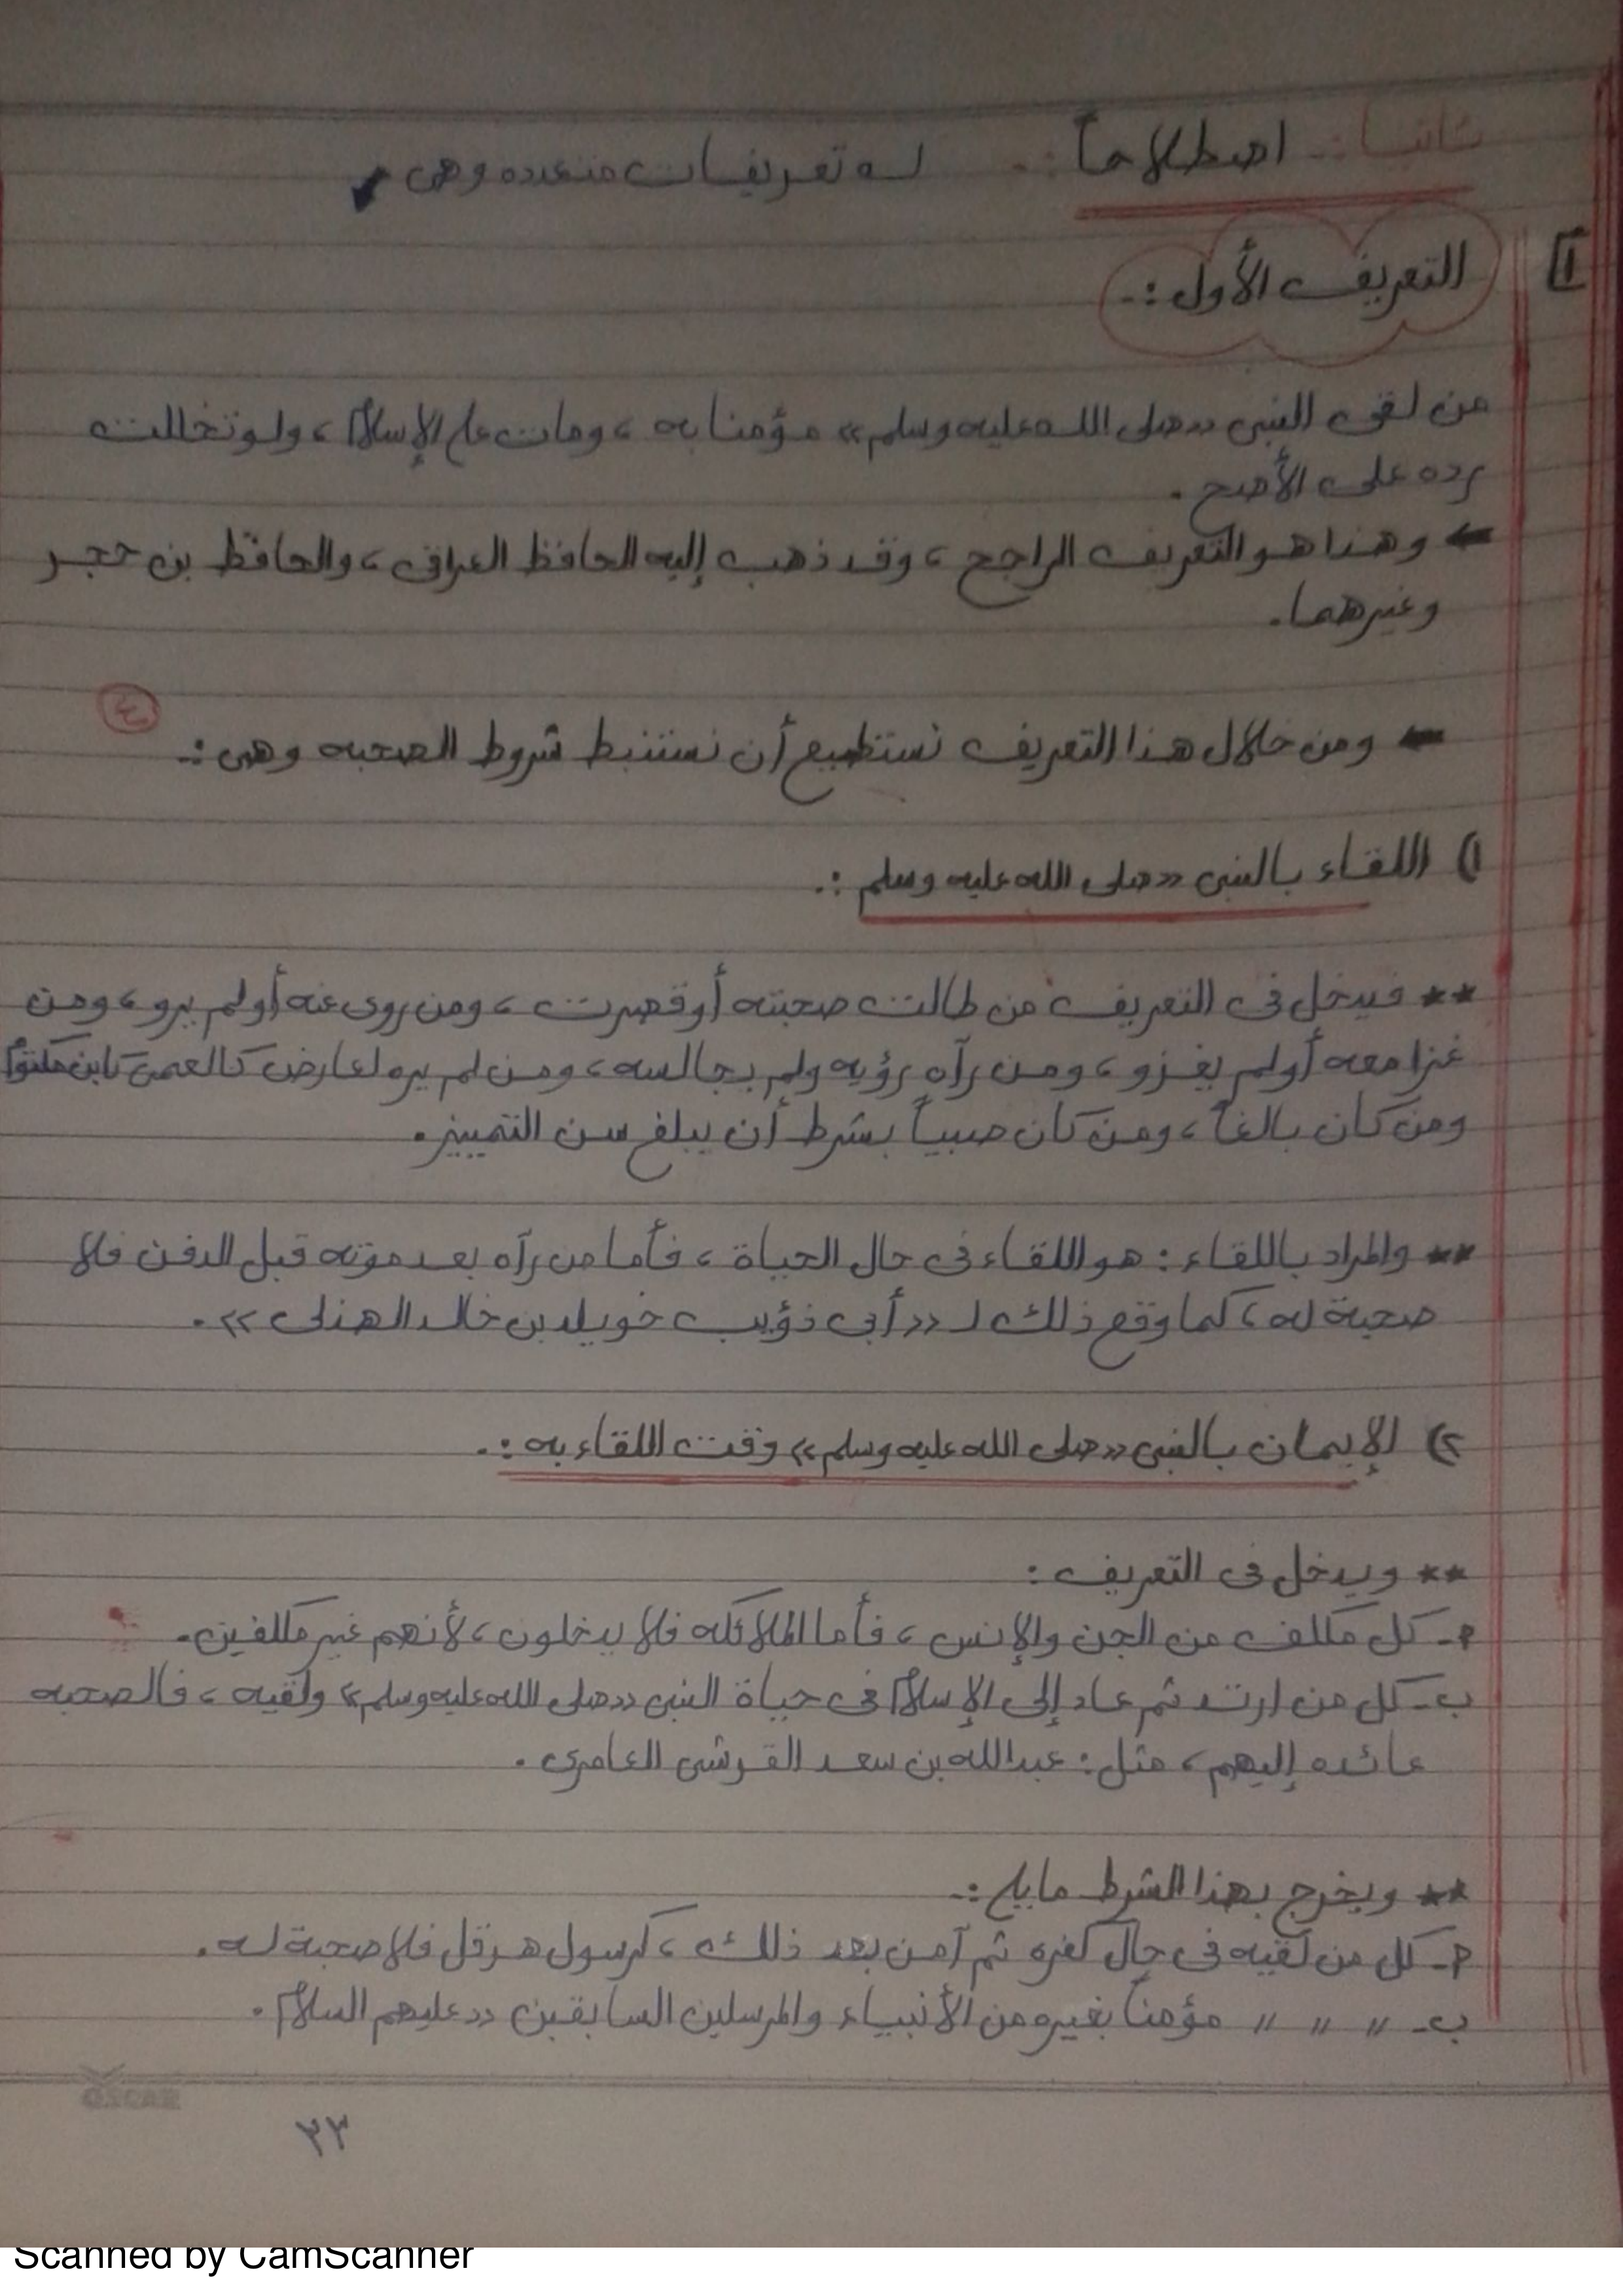 ثانيا :- اصطلاحاً :- له تعريفات متعدده وهى
١ التعريف الأول :-
من لقى النبى «صلى الله عليه وسلم» مؤمنا به ، ومات على الإسلام ، ولو تخللت
رده على الأصح .
← وهذا هو التعريف الراجح ، وقد ذهب إليه الحافظ العراقى ، والحافظ بن حجر
وغيرهما .
٤
← ومن خلال هذا التعريف نستطيع أن نستنبط شروط الصحبه وهى :-
١) اللقاء بالنبى «صلى الله عليه وسلم :-
** فيدخل فى التعريف من طالت صحبته أو قصرت ، ومن روى عنه أو لم يرو ، ومن
غزا معه أو لم يغزو ، ومن رآه رؤيه ولم يجالسه ، ومن لم يره لعارض كالعمى كابن مكتوم
ومن كان بالغاً ، ومن كان صبياً بشرط أن يبلغ سن التمييز .
** والمراد باللقاء : هو اللقاء فى حال الحياة ، فأما من رآه بعد موته قبل الدفن فلا
صحبة له ، كما وقع ذلك لـ «أبى ذؤيب خويلد بن خالد الهذلى» .
٢) الإيمان بالنبى «صلى الله عليه وسلم» وقت اللقاء به :-
** ويدخل فى التعريف :
أ- كل مكلف من الجن والإنس ، فأما الملائكه فلا يدخلون ، لأنهم غير مكلفين .
ب- كل من ارتد ثم عاد إلى الإسلام فى حياة النبى «صلى الله عليه وسلم» ولقيه ، فالصحبه
عائده إليهم ، مثل : عبدالله بن سعد القرشى العامرى .
** ويخرج بهذا الشرط مايلى :-
أ- كل من لقيه فى حال كفره ثم آمن بعد ذلك ، كرسول هرقل فلا صحبة له .
ب- " " " مؤمناً بغيره من الأنبياء والمرسلين السابقين «عليهم السلام .
OSCAR
٢٣
Scanned by CamScanner